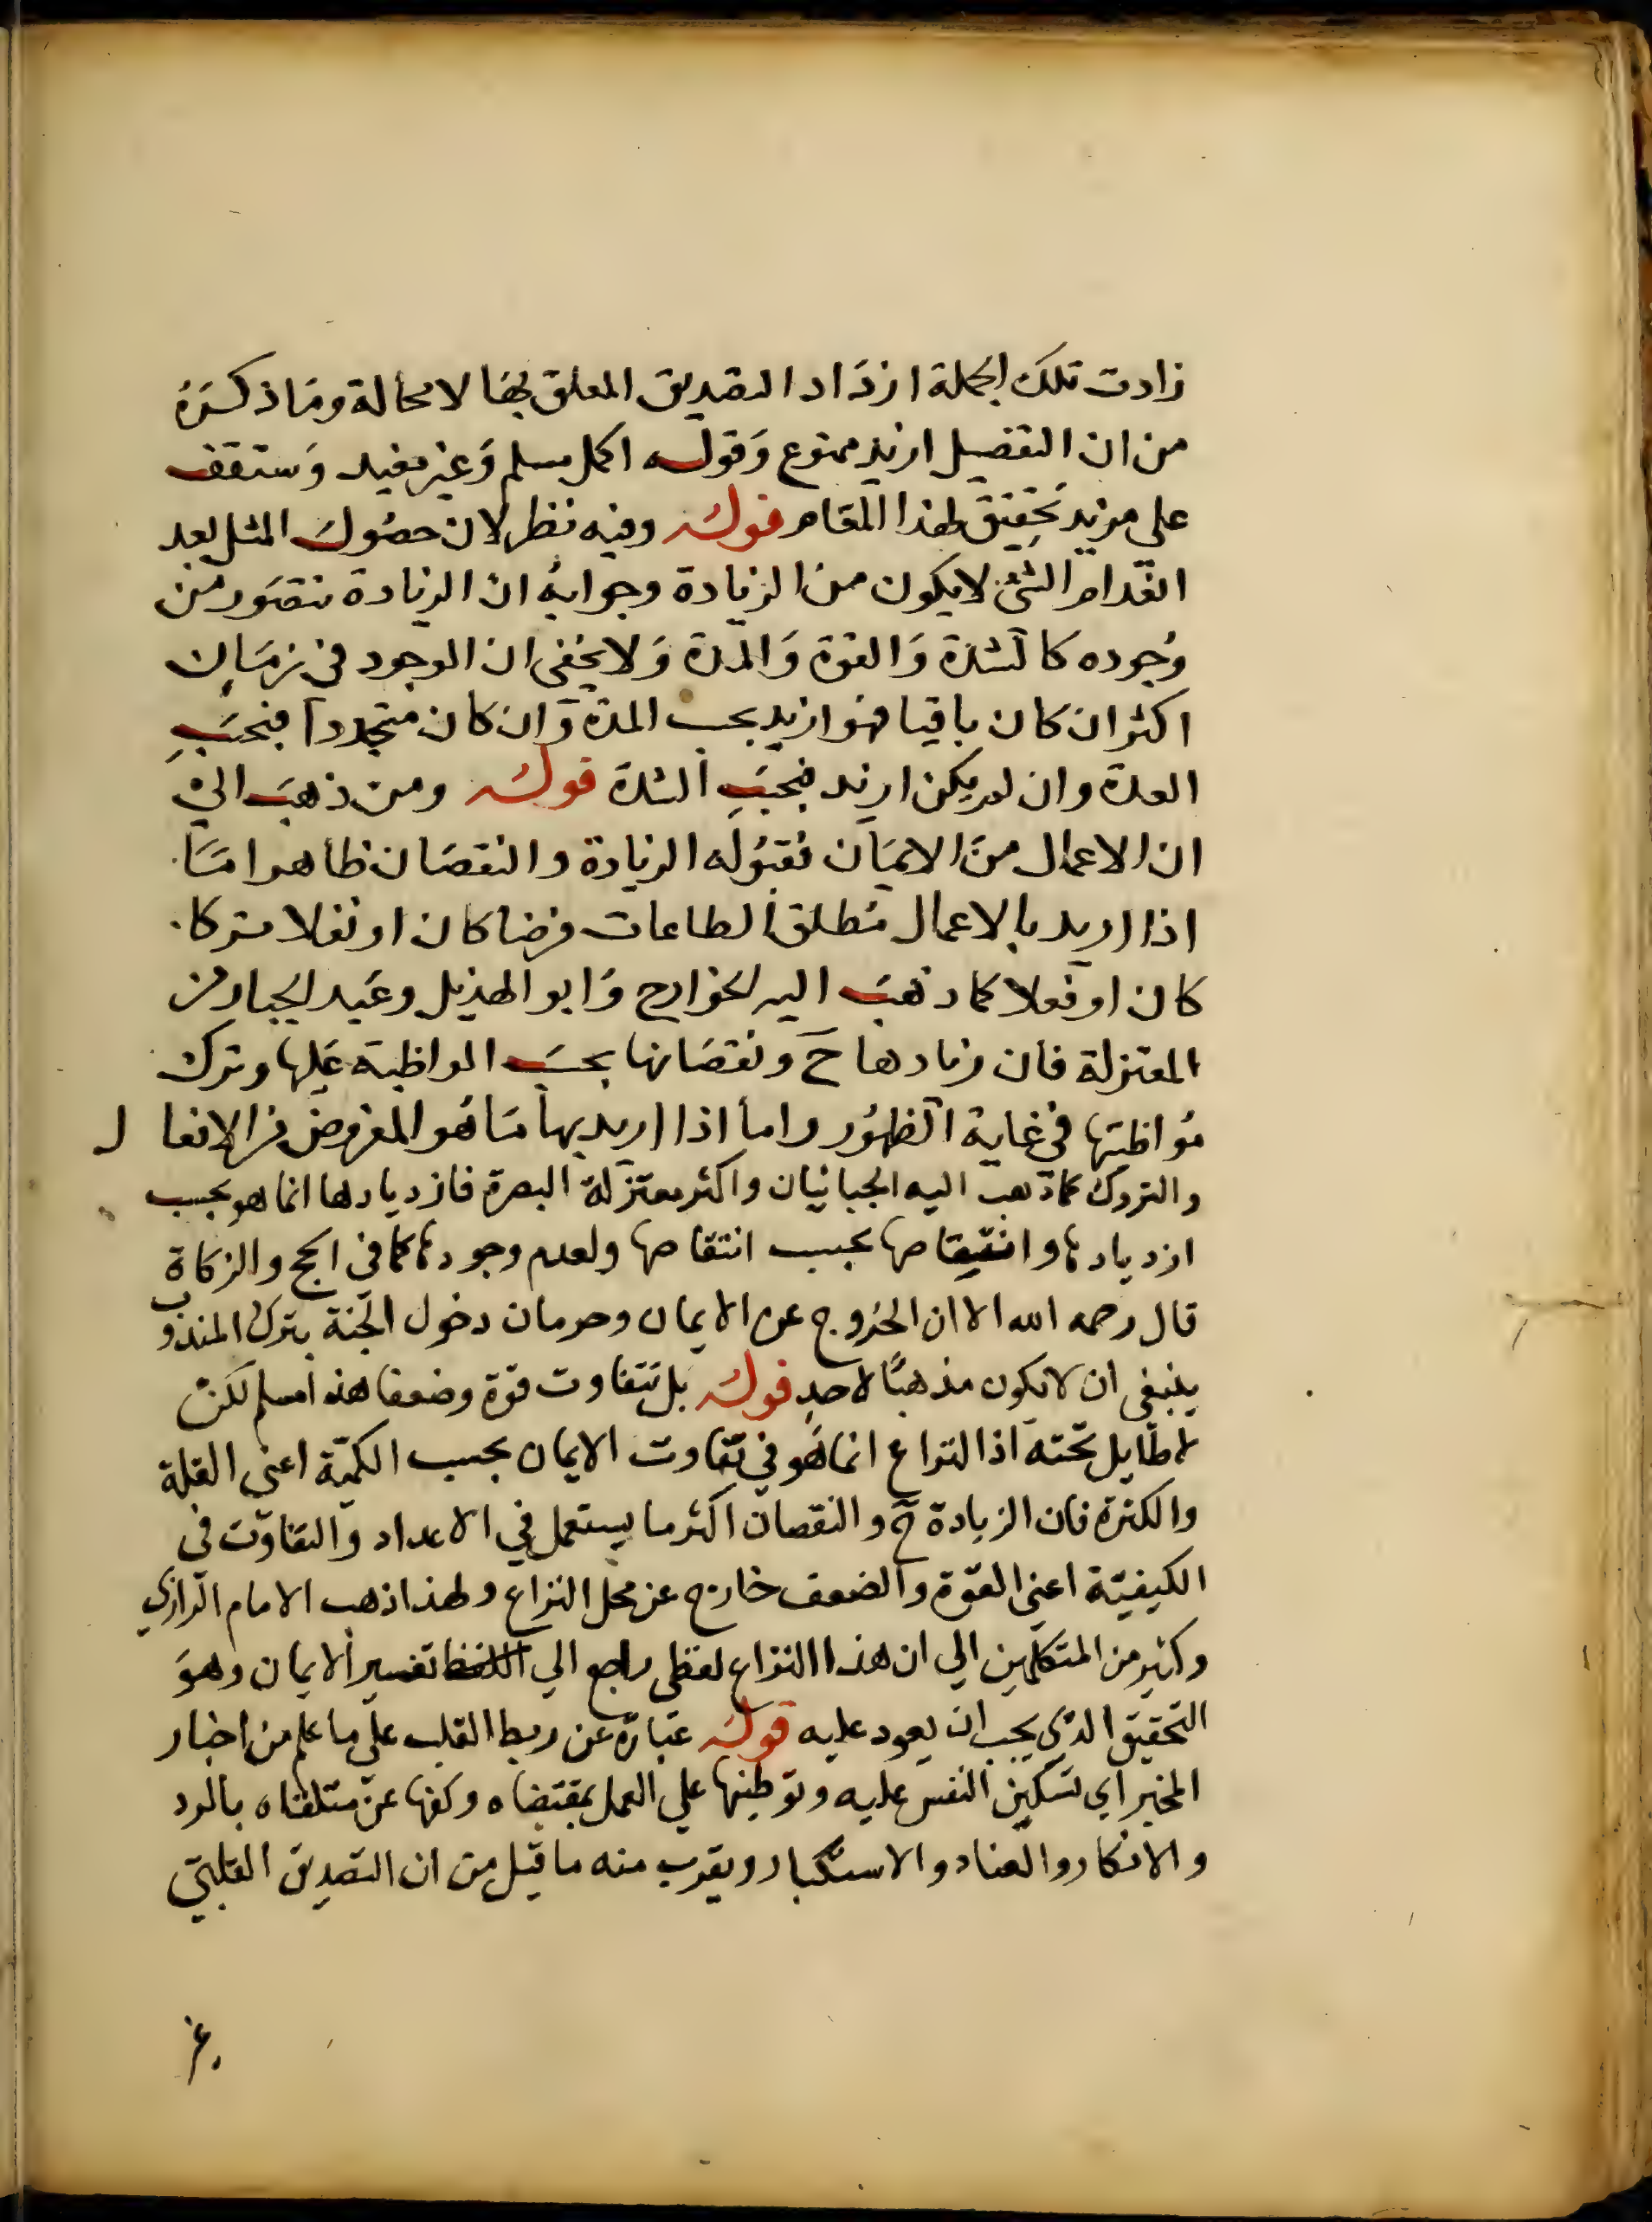 زادت تلك الجملة ازداد التصديق المعلق بها لا محالة وما ذكره
من ان التفصيل ازيد ممنوع وقوله اكمل مسلم وغير مفيد وستقف
على مزيد تحقيق لهذا المقام قوله وفيه نظر لان حصول المثل بعد
انعدام الشئ لا يكون من الزيادة وجوابه ان الزيادة تتصور من
وجوده كالشدة والقوة والمدة ولا يخفى ان الموجود في زمان
اكثر ان كان باقيا فهو ازيد بحسب المدة وان كان متجددا فبحسب
العدة وان لم يكن ازيد فبحسب الشدة قوله ومن ذهب الى
ان الاعمال من الايمان فقبوله الزيادة والنقصان ظاهر اما
اذا اريد بالاعمال مطلق الطاعات فرضا كان او نفلا تركا
كان او فعلا كما ذهب اليه الخوارج وابو الهذيل وعبد الجبار من
المعتزلة فان زيادها ح ونقصانها بحسب المواظبة عليها وترك
مواظبتها في غاية الظهور واما اذا اريد بها ما هو المفروض من الافعال
والتروك كما ذهب اليه الجبائيان واكثر معتزلة البصرة فازديادها انما هو بحسب
ازديادها وانتقاصها بحسب انتقاصها ولعدم وجودها كما في الحج والزكاة
قال رحمه الله الا ان الخروج عن الايمان وحرمان دخول الجنة بترك المندوب
ينبغي ان لا يكون مذهبا لاحد قوله بل تتفاوت قوة وضعفا هذا مسلم لكن
لا طايل تحته اذ النزاع انما هو في تفاوت الايمان بحسب الكمية اعني القلة
والكثرة فان الزيادة ح والنقصان اكثر ما يستعمل في الاعداد والتفاوت في
الكيفية اعني القوة والضعف خارج عن محل النزاع ولهذا ذهب الامام الرازي
وكثير من المتكلمين الي ان هذا النزاع لفظي راجع الي تفسير الايمان وهو
التحقيق الذي يجب ان يعود عليه قوله عبارة عن ربط القلب على ما علم من اخبار
المخبر اي تسكين النفس عليه وتوطينها علي العمل بمقتضاه وكفها عن متلقاه بالرد
والانكار والعناد والاستكبار ويقرب منه ما قيل من ان التصديق القلبي